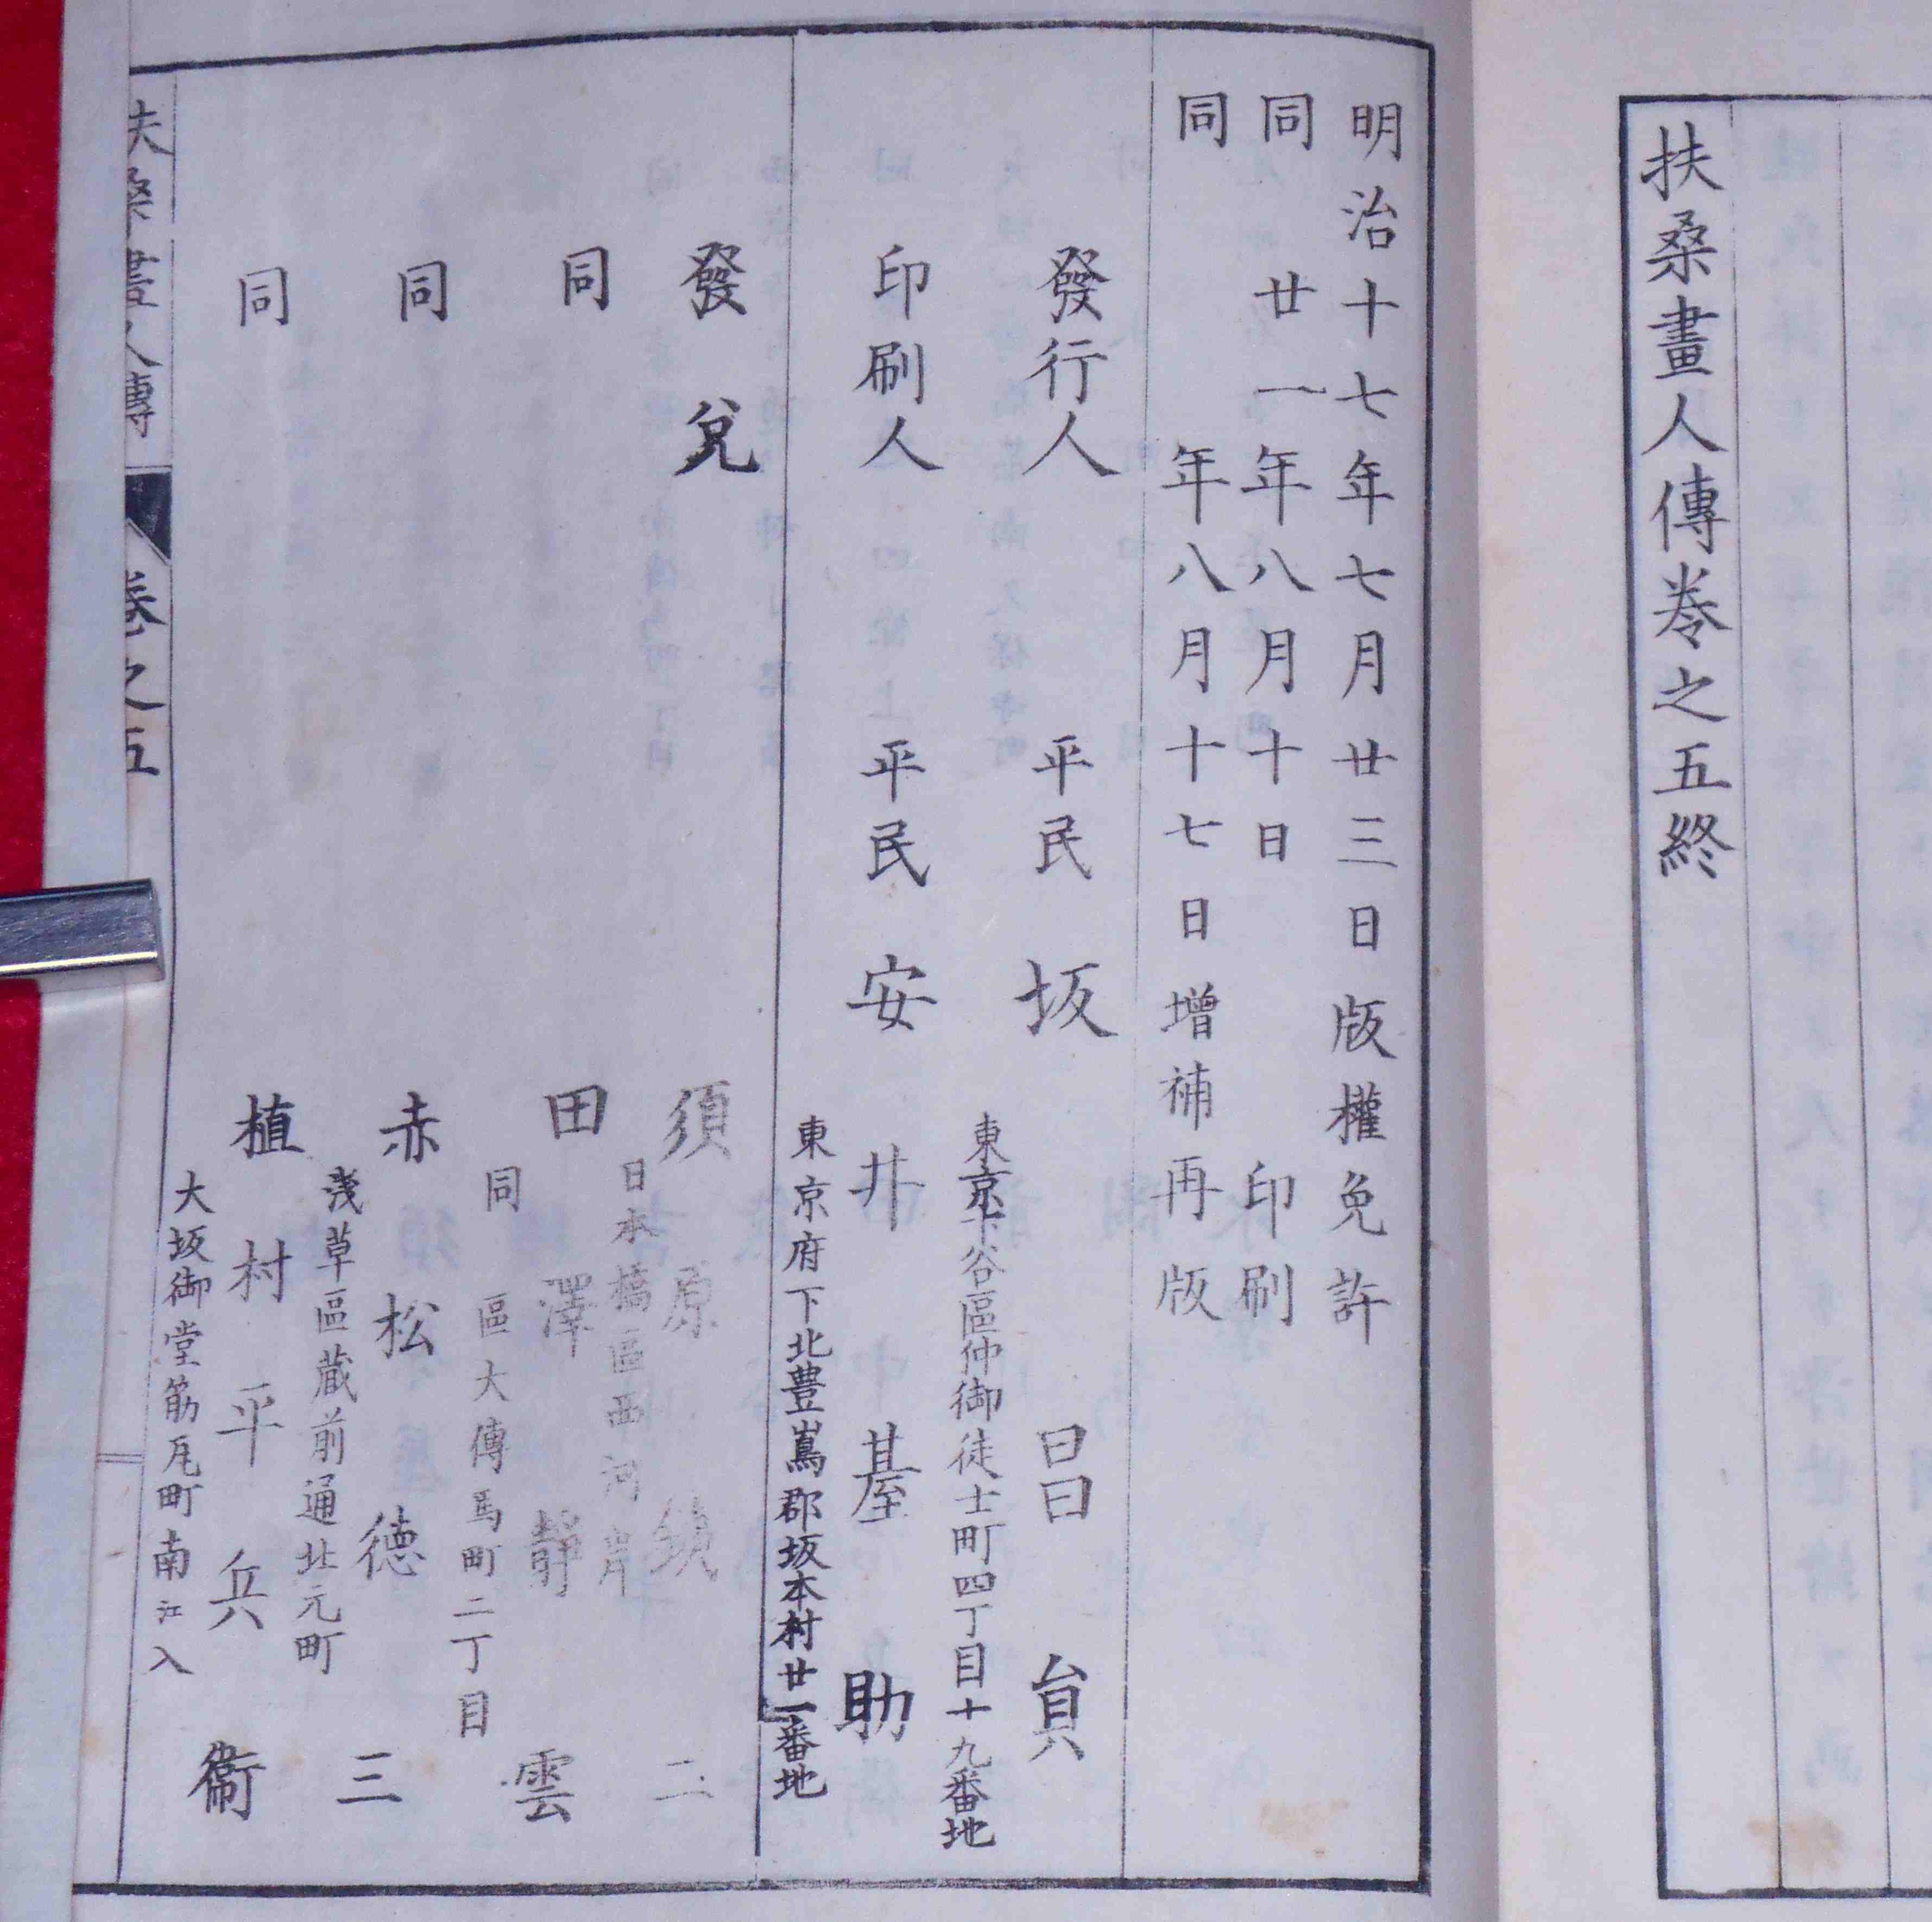 扶桑畫人傳巻之五終
明治十七年七月廿三日版權免許
同廿一年八月十日印刷
同年八月十七日增補再版
發行人平民坂昌員
東京下谷區仲御徒士町四丁目十九番地
印刷人平民安井基助
東京府下北豊嶌郡坂本村廿一番地
發兌須原鉄二
日本橋區西河岸
同田澤靜雲
同區大傳馬町二丁目
同赤松徳三
浅草區蔵前通北元町
同植村平兵衞
大坂御堂筋瓦町南江入
扶桑畫人傳 巻之五